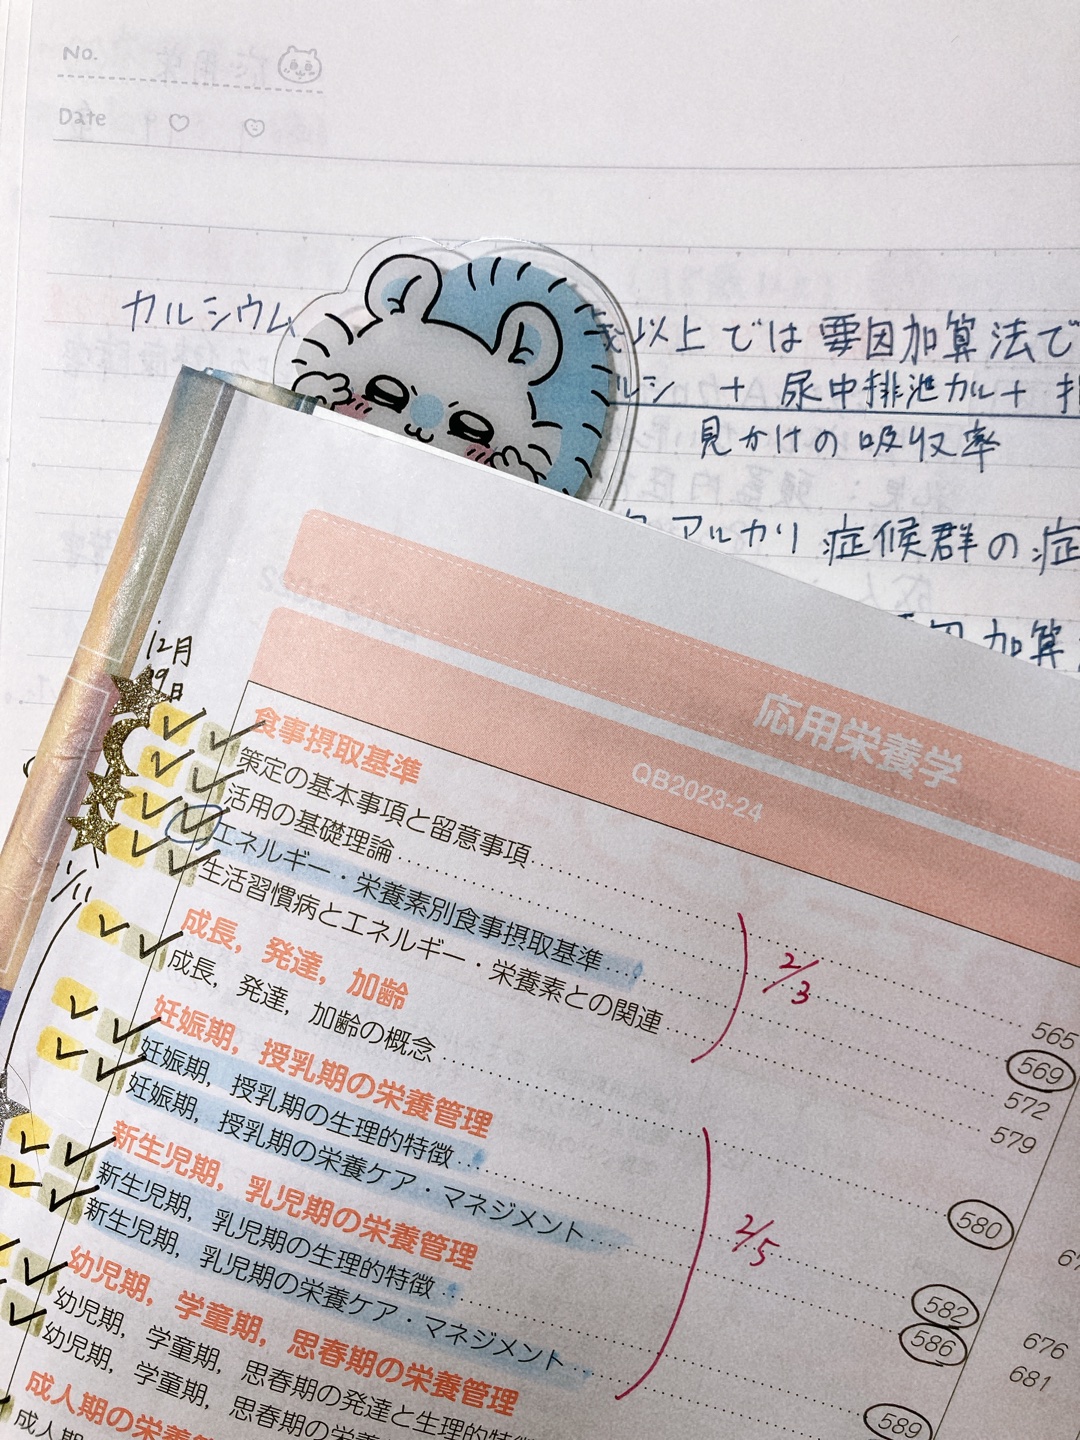 No.
Date
カルシウム
歳以上では要因加算法で
ルシ + 尿中排泄カル+
見かけの吸収率
アルカリ症候群の症
因加算
12月
19日
1/11
応用栄養学
QB2023-24
食事摂取基準
策定の基本事項と留意事項 565
活用の基礎理論 569
エネルギー・栄養素別食事摂取基準 572
生活習慣病とエネルギー・栄養素との関連 579
2/3
成長，発達，加齢
成長，発達，加齢の概念 580
妊娠期，授乳期の栄養管理
妊娠期，授乳期の生理的特徴 582
妊娠期，授乳期の栄養ケア・マネジメント 586
新生児期，乳児期の栄養管理
新生児期，乳児期の生理的特徴 589
新生児期，乳児期の栄養ケア・マネジメント
2/5
幼児期，学童期，思春期の栄養管理
幼児期，学童期，思春期の発達と生理的特
幼児期，学童期，思春期の栄養
成人期の栄養
成人期
67
676
681